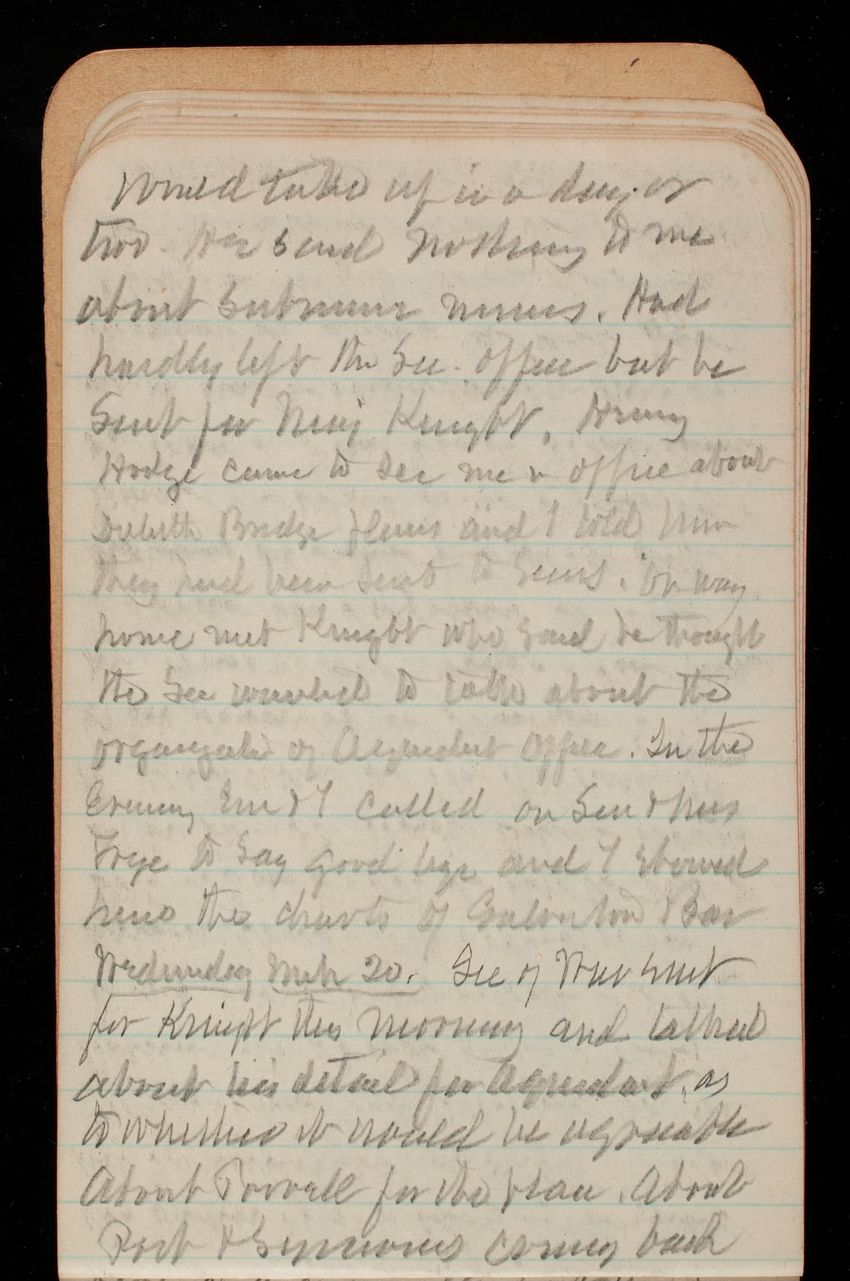 Would talk up in a day or
two. He said nothing to me
about submarine mines. Had
hardly left the Sec. office but he
Sent for Maj Knight. Henry
Hodge came to see me in office about
Duluth Bridge plans and I told him
they had been sent to Sears. On way
home met Knight who said he thought
the Sec wanted to talk about the
organization of office. In the
Evening Em & I called on Sen & Mrs
Frye to say good bye and I showed
him the charts of Galveston Bar
Wednesday Mch 20. Sec of War sent
for Knight this morning and talked
about his detail for as
to whether it would be agreeable
About Powell for the place. About
Post & Symons coming back